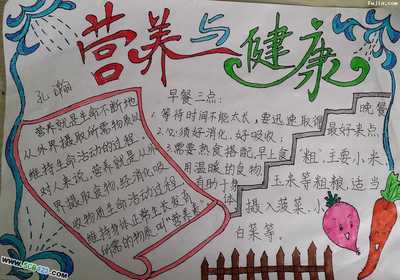 营养与健康
孔瀚
营养就是生命不断地
从外界摄取所需物质以
维持生命活动的过程。
对人来说,营养就是从外
界摄取食物,经消化吸
收物质生命活动的过程,
维持身体正常生长发育
所需的物质叫"营养素"
早餐三点:
1.等待时间不能太长,需迅速取得
2.必须好消化、好吸收;
3.需要熟食搭配,早上食
用温暖的食物,
有助于身
体
晚餐
最好来点
"粗",主要小米、
玉米等粗粮,适当
摄入菠菜、小
白菜等。
fwjia.com
www.5068.com